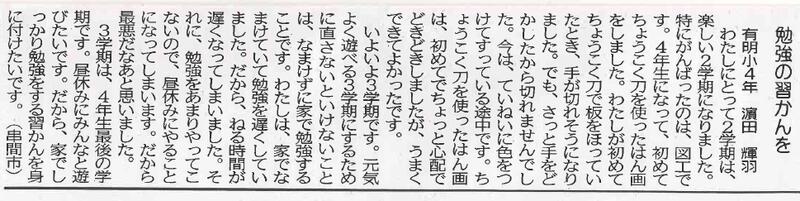 勉強の習かんを
有明小４年　濵田　輝羽
わたしにとって２学期は、
楽しい２学期になりました。
特にがんばったのは、図工で
す。４年生になって、初めて
ちょうこく刀を使ったはん画
をしました。わたしが初めて
ちょうこく刀で板をほってい
たとき、手が切れそうになり
ました。でも、さっと手をど
かしたから切れませんでし
た。今は、ていねいに色をつ
けてすっている途中です。ち
ょうこく刀を使ったはん画
は、初めてでちょっと心配で
どきどきしましたが、うまく
できてよかったです。
いよいよ３学期です。元気
よく遊べる３学期にするため
に直さないといけないこと
は、なまけずに家で勉強する
ことです。わたしは、家でな
まけていて勉強を遅くしてい
ました。だから、ねる時間が
遅くなってしまいました。そ
れに、勉強をあまりやってこ
ないので、昼休みにやること
になってしまいます。だから
最悪だなあと思いました。
３学期は、４年生最後の学
期です。昼休みにみんなと遊
びたいです。だから、家でし
っかり勉強をする習かんを身
に付けたいです。（串間市）